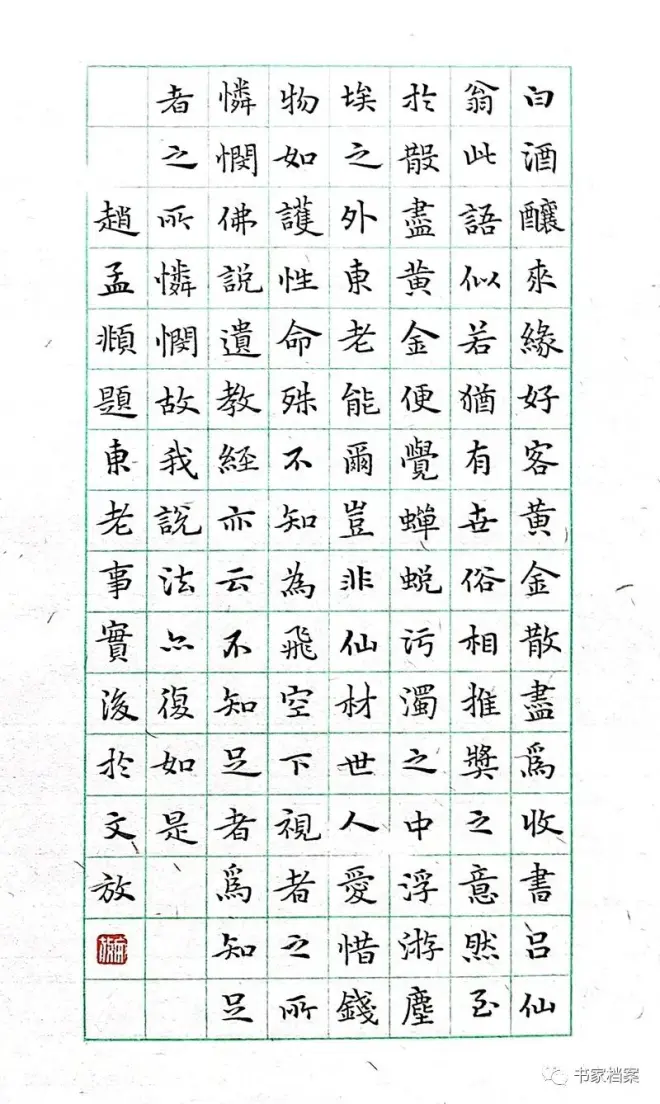 白酒釀來緣好客黄金散盡爲收書吕仙
翁此語似若猶有世俗相推奬之意然至
於散盡黄金便覺蟬蜕污濁之中浮游塵
埃之外東老能爾豈非仙材世人愛惜錢
物如護性命殊不知為飛空下視者之所
憐憫佛說遺教經亦云不知足者爲知足
者之所憐憫故我說法亦復如是
趙孟頫題東老事實後於文放
书家档案